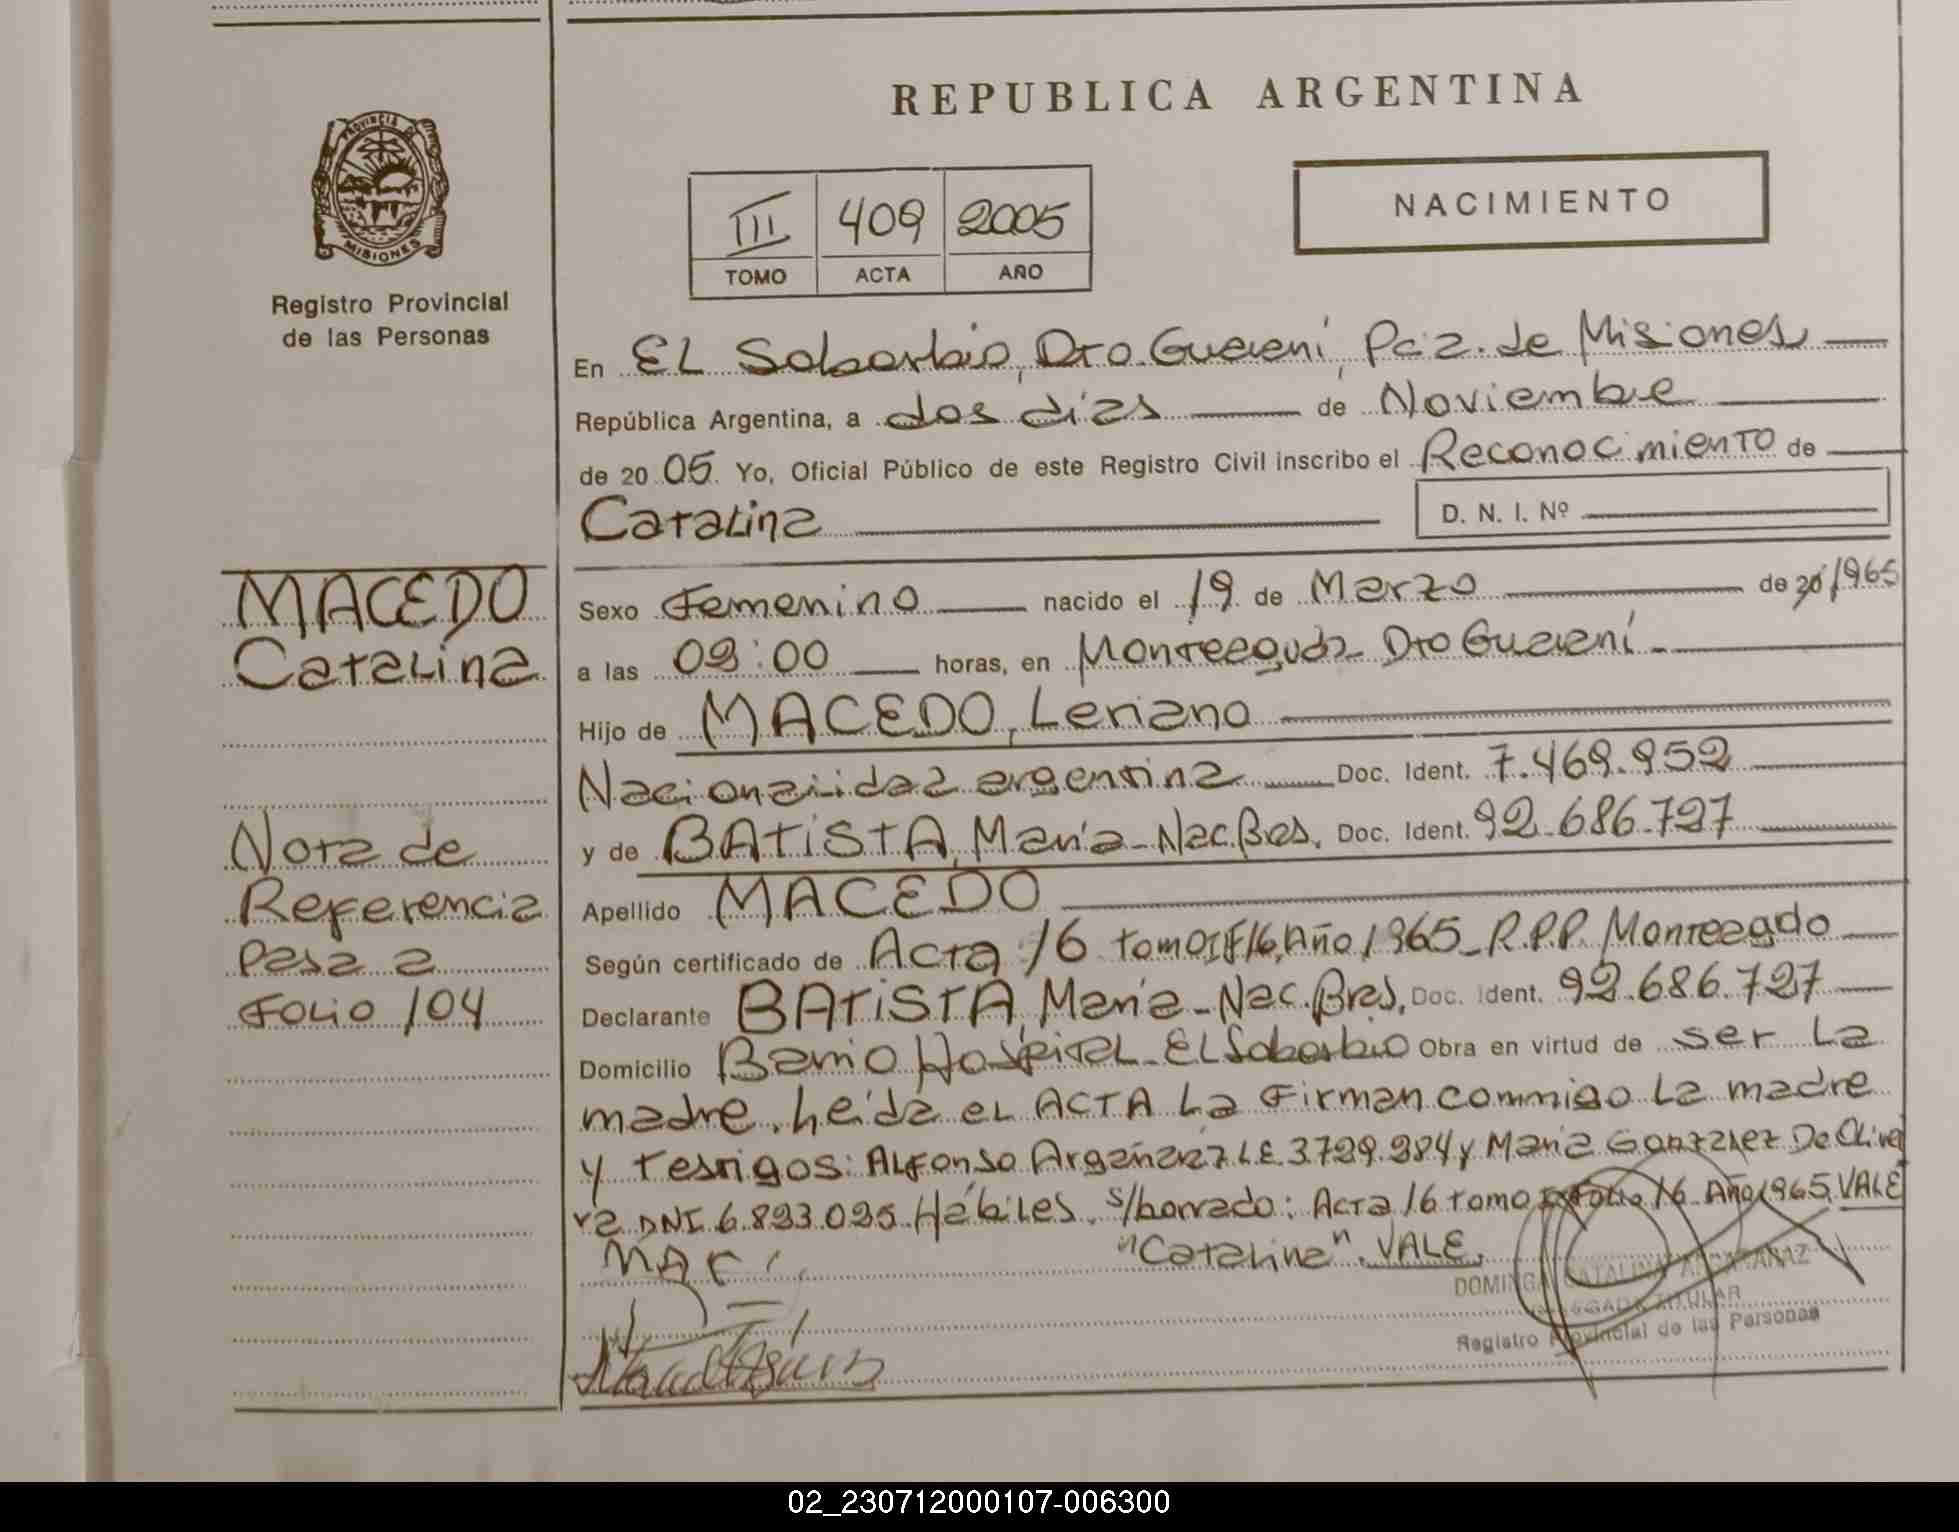 REPUBLICA ARGENTINA
PROVINCIA DE
MISIONES
Registro Provincial
de las Personas
III 409 2005
TOMO ACTA AÑO
NACIMIENTO
En EL Soberbio, Dto. Guaraní, Pcia. de Misiones
República Argentina, a dos días de Noviembre
de 20 05. Yo, Oficial Público de este Registro Civil inscribo el Reconocimiento de
Catalina
D. N. I. Nº
MACEDO
Catalina
Sexo Femenino nacido el 19 de Marzo de 20 1965
a las 09:00 horas, en Monteagudo Dto Guaraní
Hijo de MACEDO, Leriano
Nacionalidad argentina Doc. Ident. 7.469.952
y de BATISTA, María - Nac. Bras. Doc. Ident. 92.686.727
Apellido MACEDO
Según certificado de Acta 16 tomo I F/16, Año 1965 - R.P.P. Monteagudo
Declarante BATISTA, María - Nac. Bras. Doc. Ident. 92.686.727
Domicilio Barrio Hospital - El Soberbio Obra en virtud de ser la
madre. Leída el ACTA La Firman conmigo La madre
y testigos: Alfonso LE 3.729.284 y María Gonzalez De Olivei
ra DNI 6.823.025 Hábiles. s/borrado: Acta 16 tomo I Folio 16 Año 1965 VALE
"Catalina". VALE.
Nota de
Referencia
Pasa a
Folio 104
DOMINGA CATALINA
DELEGADA TITULAR
Registro Provincial de las Personas
02_230712000107-006300